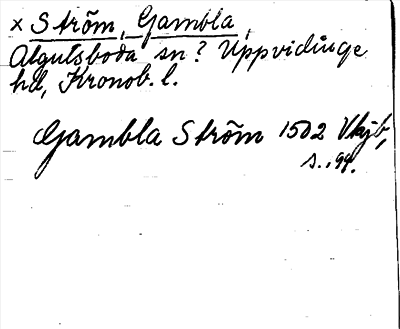 x Ström, Gambla,
Algutsboda sn? Uppvidinge
hd, Kronob. l.
Gambla Ström 1502 Vkjb,
s. 199.